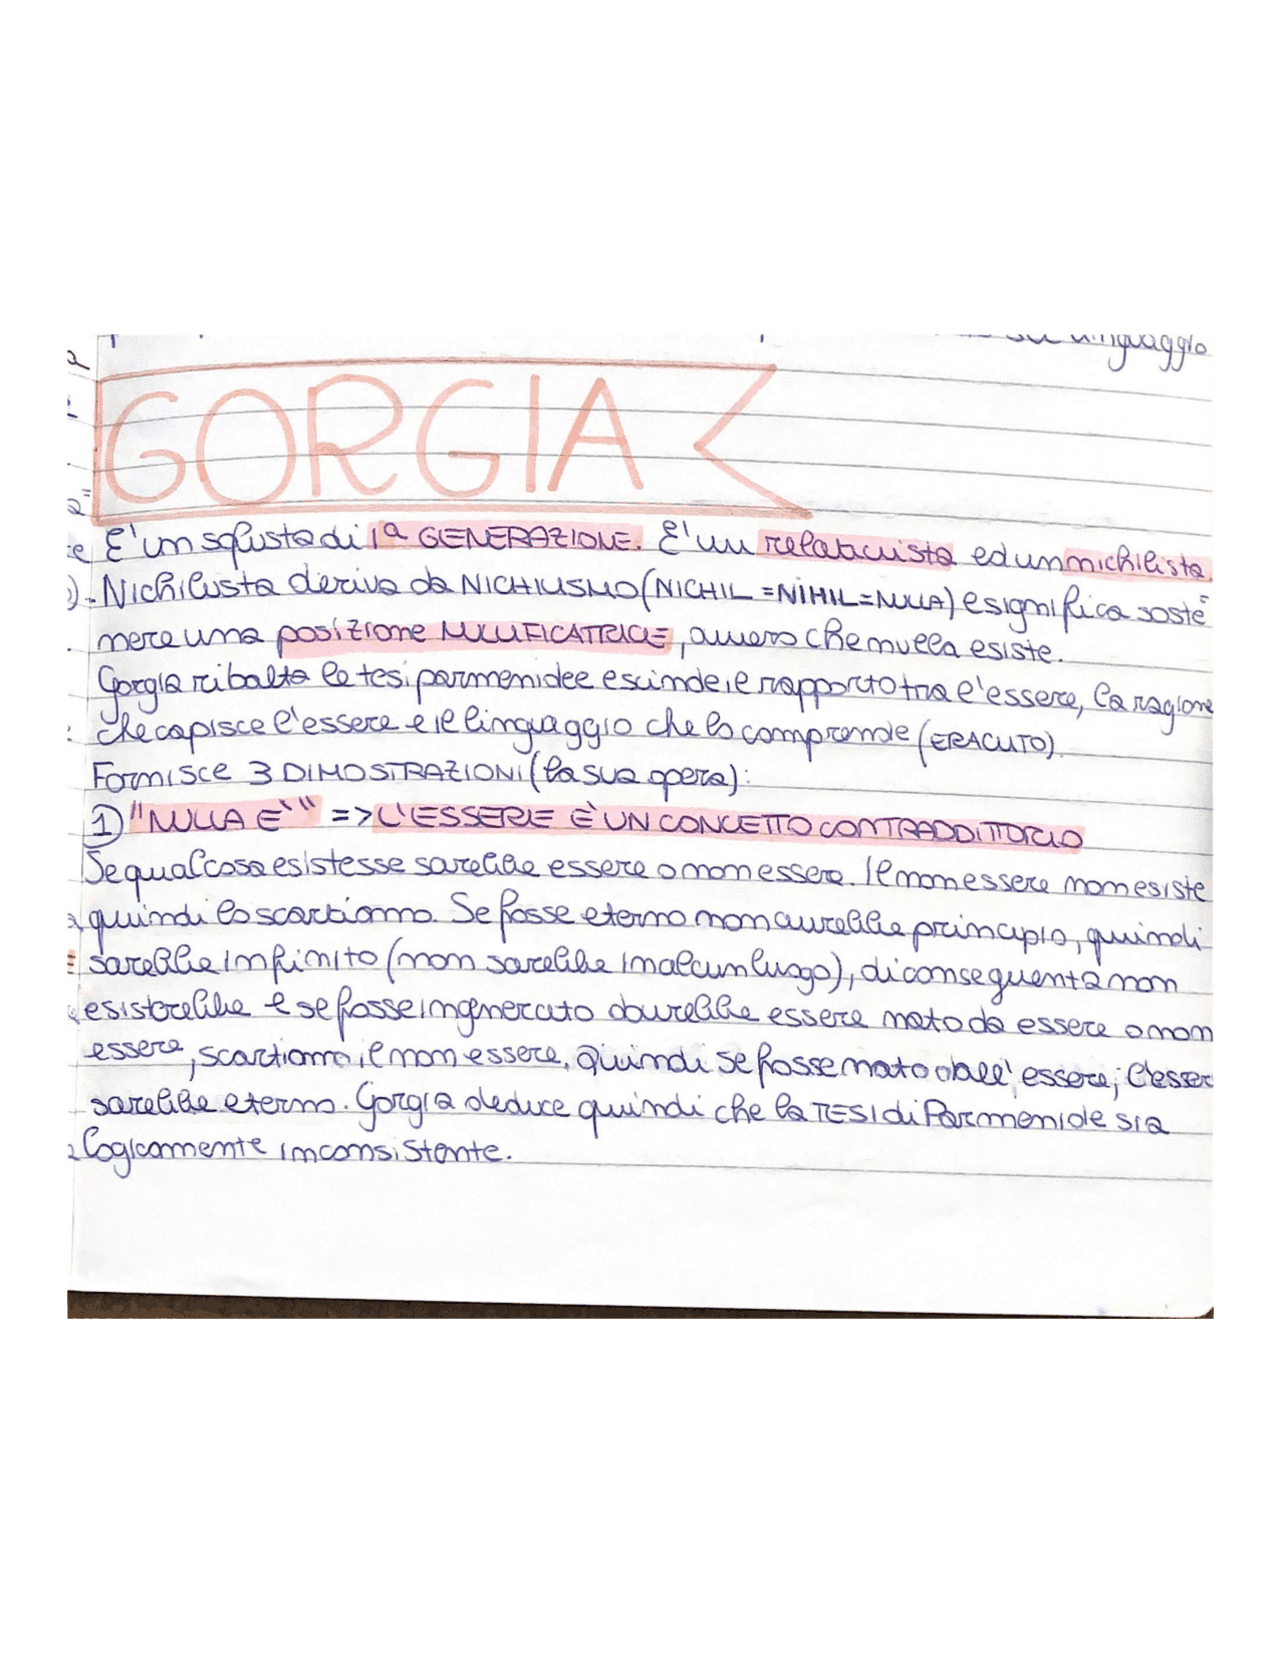 linguaggio
GORGIA
E' un sofista di 1ª GENERAZIONE. E' un relativista ed un nichilista.
- Nichilista deriva da NICHILISMO (NICHIL = NIHIL = NULLA) e significa soste
nere una posizione NULLIFICATRICE, ovvero che nulla esiste.
Gorgia ribalta le tesi parmenidee e scinde il rapporto tra l'essere, la ragione
che capisce l'essere e il linguaggio che lo comprende (ERACLITO).
Fornisce 3 DIMOSTRAZIONI (la sua opera):
1) "NULLA E'" => L'ESSERE È UN CONCETTO CONTRADDITTORIO
Se qualcosa esistesse sarebbe essere o non essere. Il non essere non esiste
quindi lo scartiamo. Se fosse eterno non avrebbe principio, quindi
sarebbe infinito (non sarebbe in alcun luogo), di conseguenza non
esisterebbe e se fosse ingnerato dovrebbe essere nato da essere o non
essere, scartiamo il non essere. Quindi se fosse nato dall'essere, l'esser
sarebbe eterno. Gorgia deduce quindi che la TESI di Parmenide sia
logicamente inconsistente.